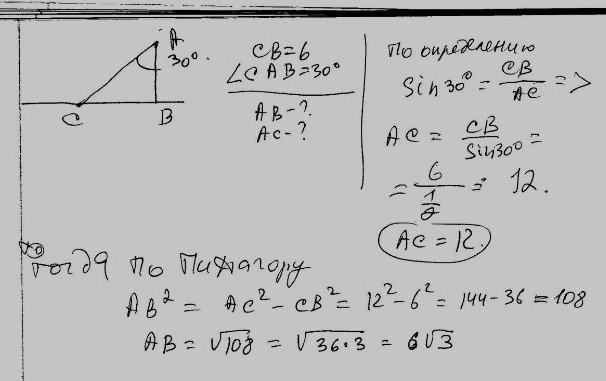 A
30°
C
B
CB=6
∠CAB=30°
AB-?
AC-?
По определению
Sin30°=CB/AC=>
AC=CB/Sin30°=
=6/(1/2)=12.
AC=12.
тогда по Пифагору
AB²=AC²-CB²=12²-6²=144-36=108
AB=√108=√36·3=6√3